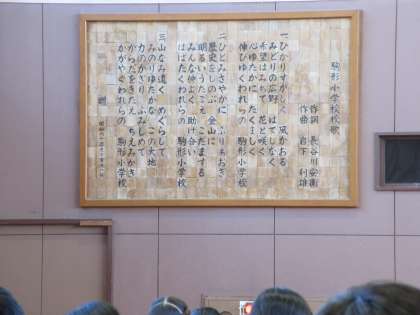 駒形小学校校歌
作詞 長谷川安衛
作曲 白下 利雄
一 ひかりすがしく 風かおる
みどりの広野 はてしなく
希望はみちて 花と咲く
心ゆたかに たくましく
伸びゆくわれらの 駒形小学校
二 ひとみさやかに ふりあおぎ
歴史をしのぶ 金山に
明るいうたごえ こだまする
みんな仲よく 助け合い
はばたくわれらの 駒形小学校
三 山なみ遠く めぐらして
みのりゆたかな この大地
力のかぎり ふみしめて
からだをきたえ ちえみがき
かがやくわれらの 駒形小学校